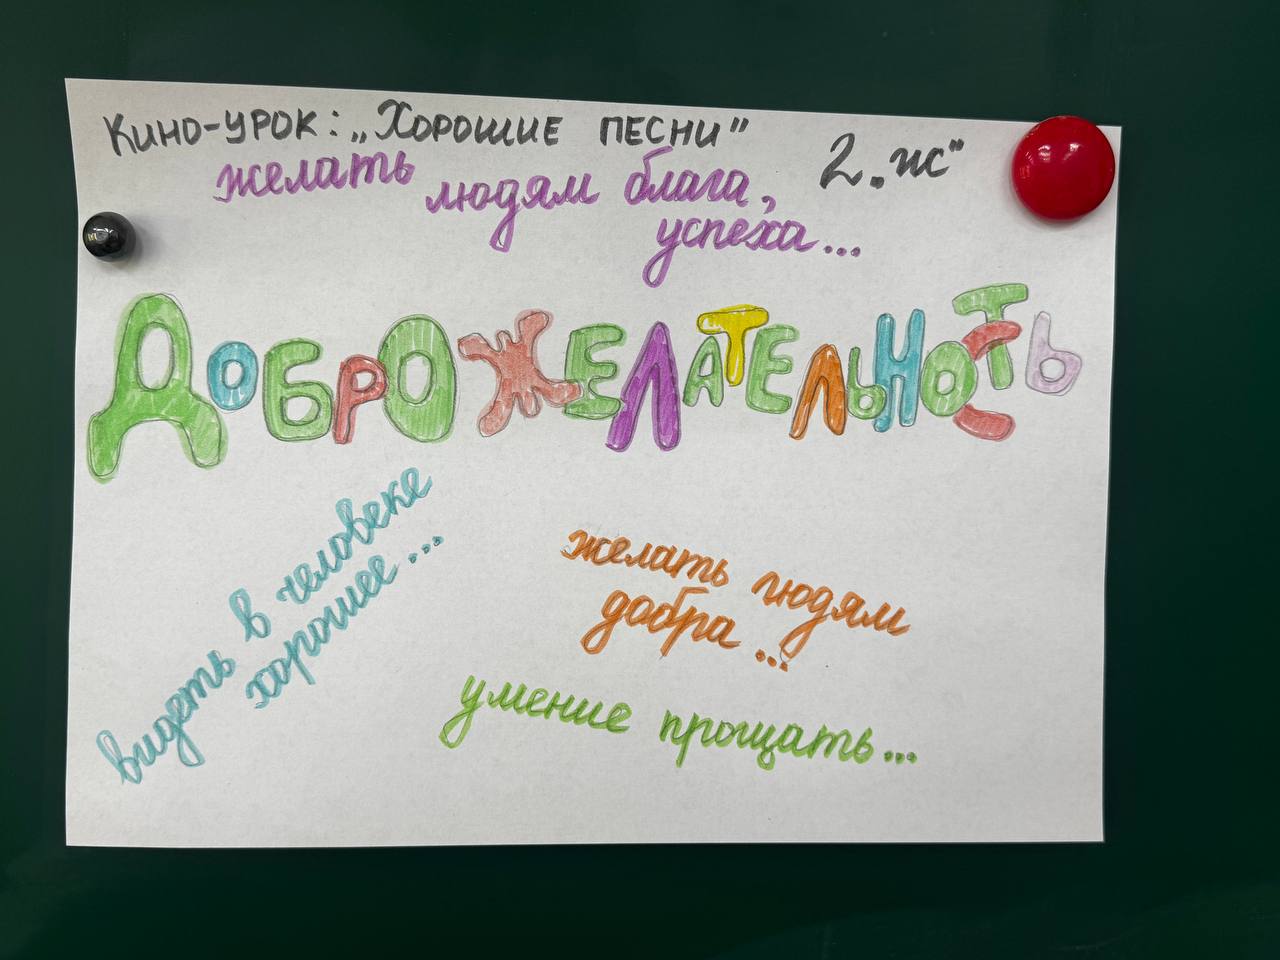 Кино-урок: „Хорошие песни"
2 „ж"
желать людям блага,
успеха...
Доброжелательность
видеть в человеке
хорошее...
желать людям
добра...
умение прощать...